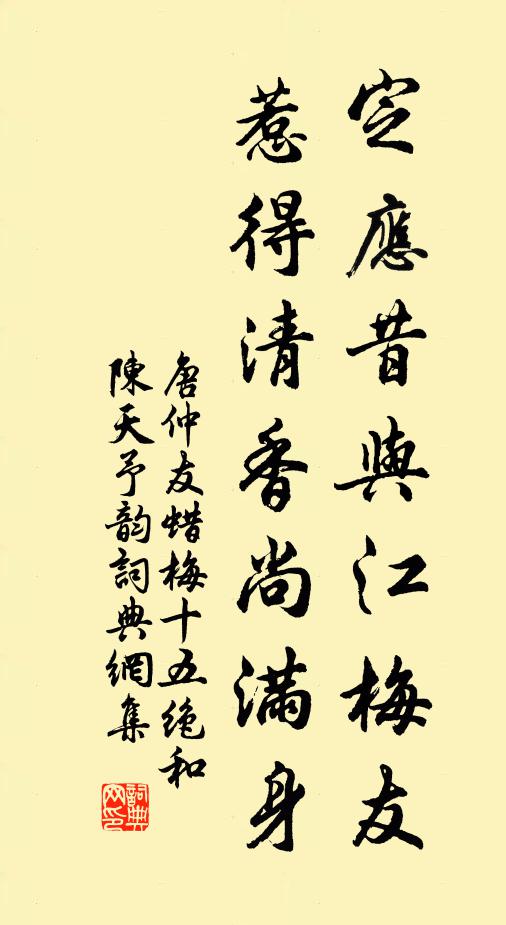 定應昔與江梅友
惹得清香尚滿身
唐仲友蜡梅十五絶和
陳天予韵詞典網集
詞典网印